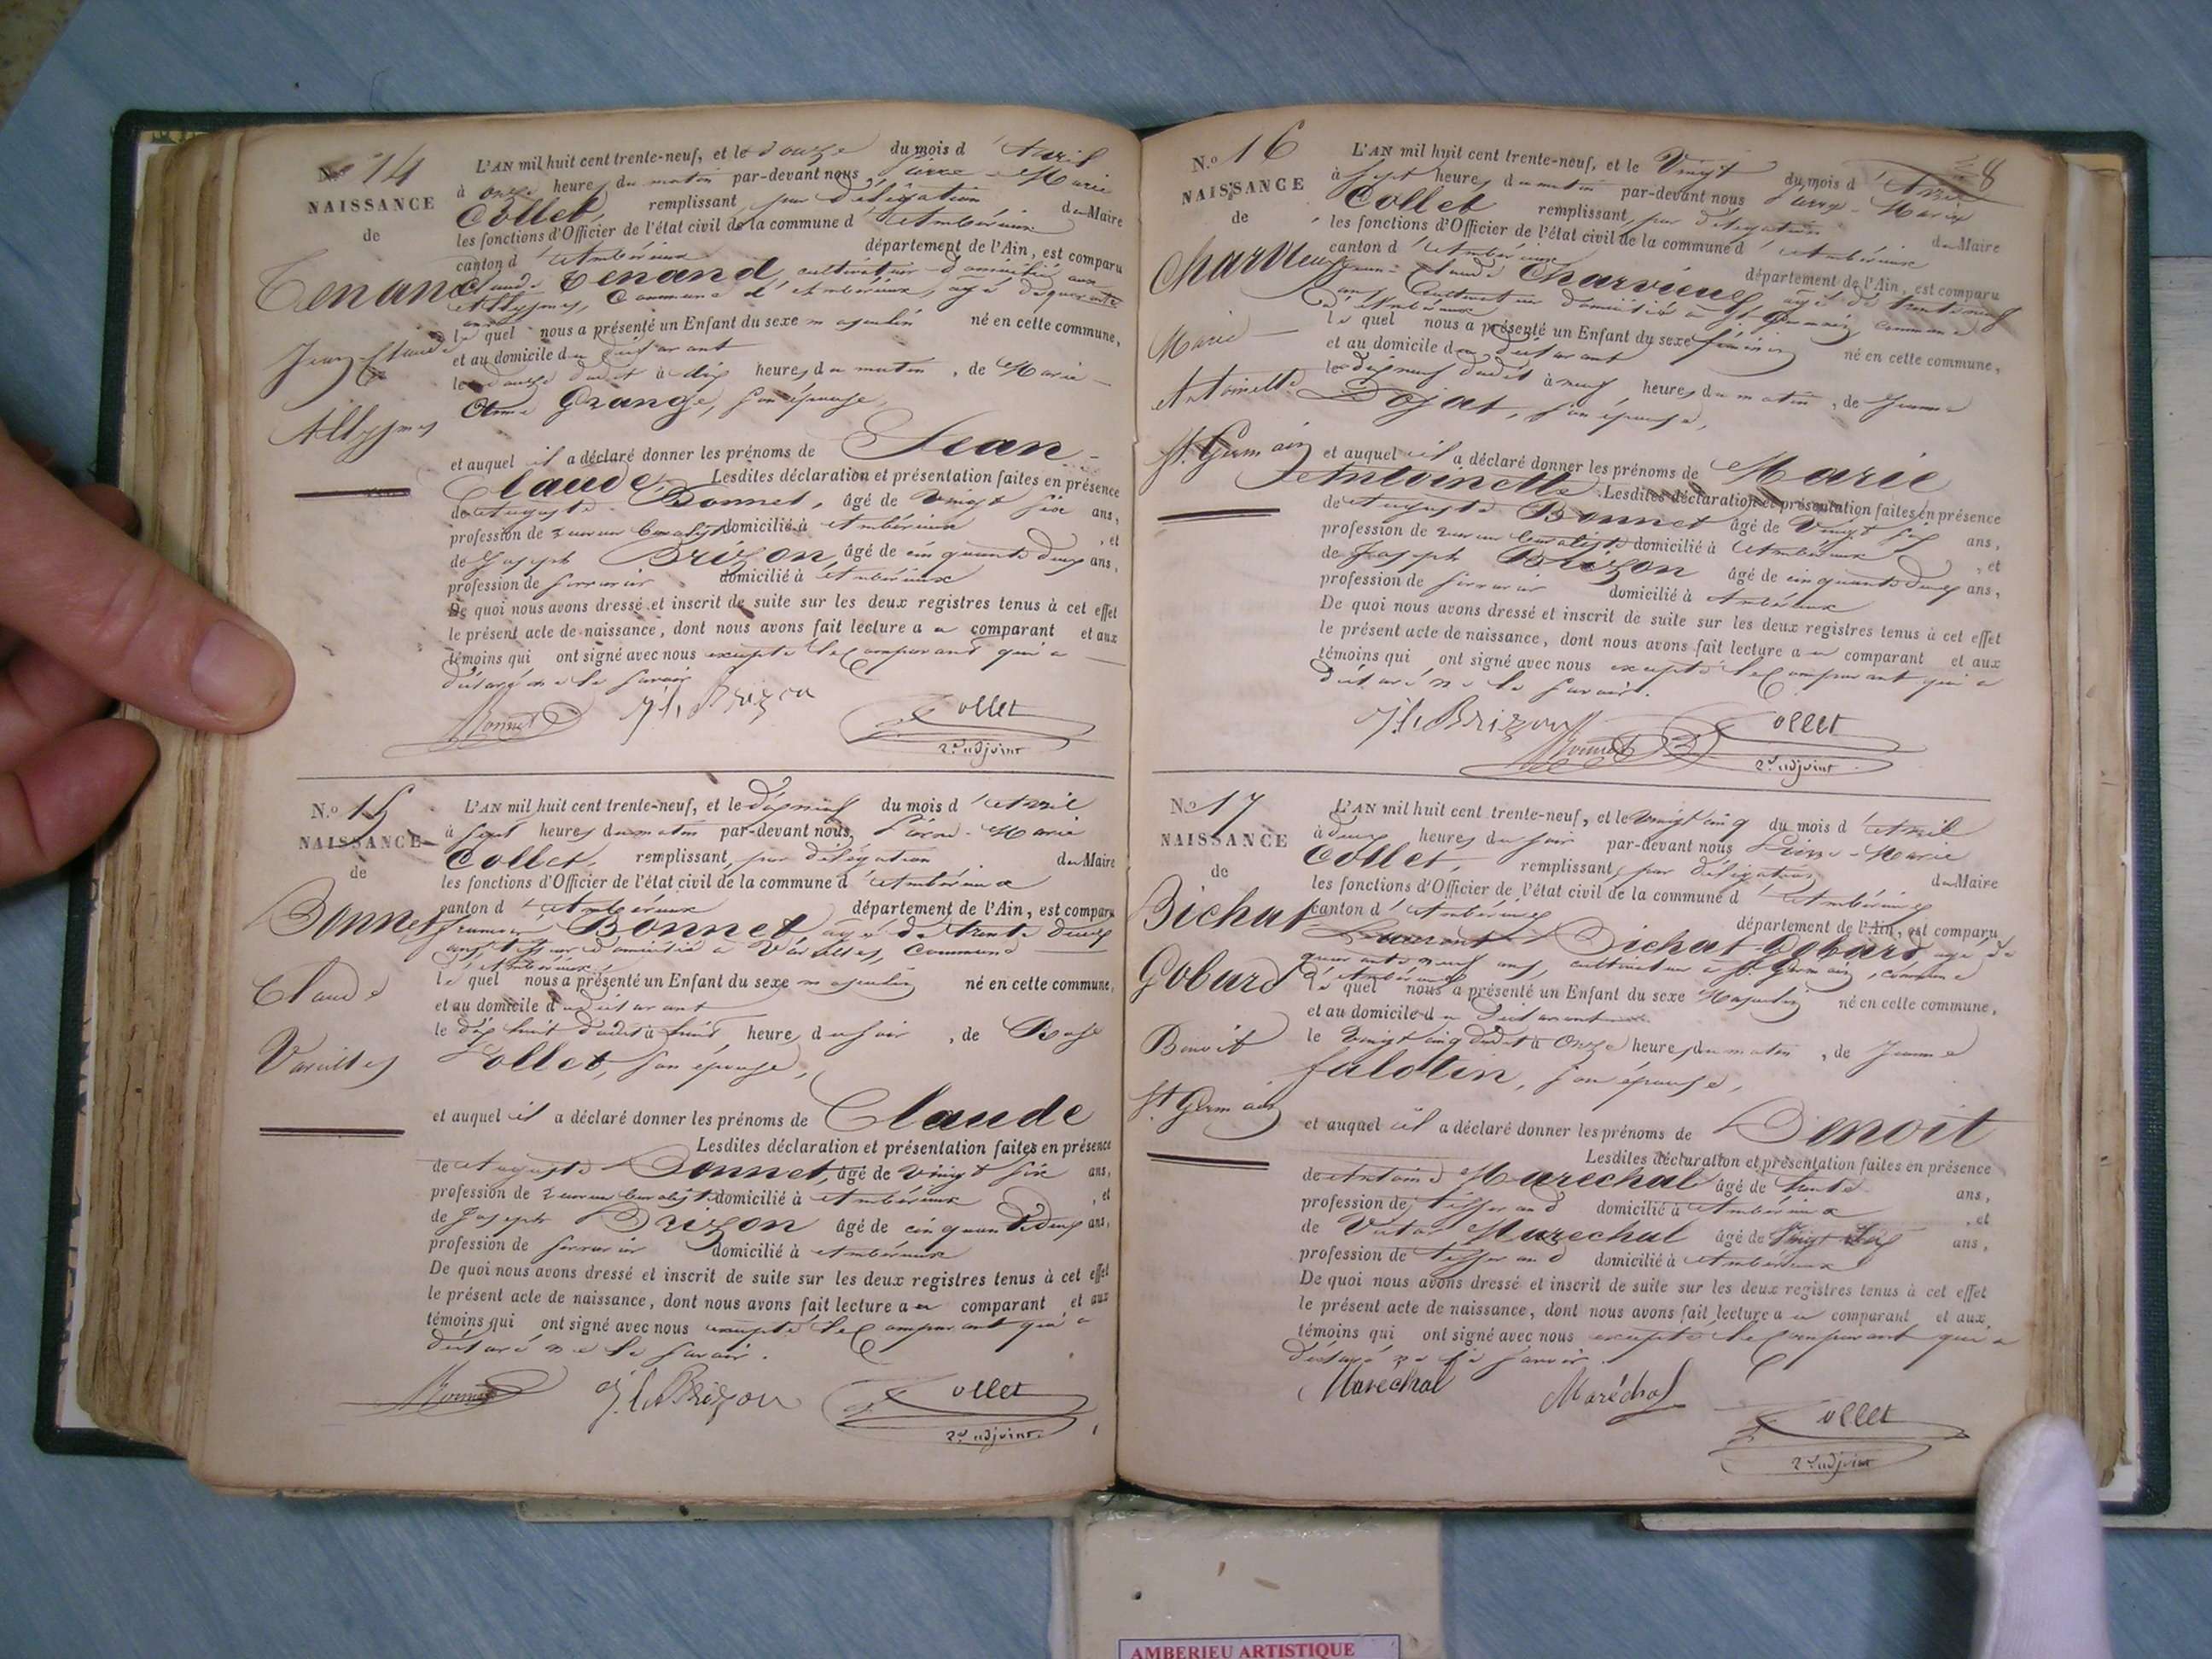 N.º 14
NAISSANCE
de
Tenand
Jean-Claude
Allymes
L'AN mil huit cent trente-neuf, et le douze du mois d'Avril
à onze heures du matin par-devant nous Pierre-Marie
Collet, remplissant par délégation du Maire
les fonctions d'Officier de l'état civil de la commune d'Ambérieux
canton d'Ambérieux département de l'Ain, est comparu
Claude Tenand, cultivateur domicilié aux
Allymes, Commune d'Ambérieux, âgé de quarante
ans
lequel nous a présenté un Enfant du sexe masculin né en cette commune,
et au domicile du déclarant
le douze dudit à dix heures du matin, de Marie-
Anne Grange, son épouse,
et auquel il a déclaré donner les prénoms de Jean-
Claude Lesdites déclaration et présentation faites en présence
de Auguste Bonnet, âgé de vingt six ans,
profession de domicilié à Ambérieux, et
de Joseph Brizon, âgé de cinquante deux ans,
profession de serrurier domicilié à Ambérieux
De quoi nous avons dressé et inscrit de suite sur les deux registres tenus à cet effet
le présent acte de naissance, dont nous avons fait lecture au comparant et aux
témoins qui ont signé avec nous excepté le Comparant qui a
déclaré ne le savoir
Bonnet J.h Brizon Collet
2.d adjoint
N.º 15
NAISSANCE
de
Bonnet
Claude
Vareilles
L'AN mil huit cent trente-neuf, et le dix neuf du mois d'Avril
à sept heures du matin par-devant nous, Pierre-Marie
Collet, remplissant par délégation du Maire
les fonctions d'Officier de l'état civil de la commune d'Ambérieux
canton d'Ambérieux département de l'Ain, est comparu
Bonnet âgé de trente deux
ans, domicilié à Vareilles, Commune
d'Ambérieux
lequel nous a présenté un Enfant du sexe masculin né en cette commune,
et au domicile du déclarant
le dix huit dudit à huit heures du soir, de Rose
Collet, son épouse,
et auquel il a déclaré donner les prénoms de Claude
Lesdites déclaration et présentation faites en présence
de Auguste Bonnet, âgé de vingt six ans,
profession de domicilié à Ambérieux, et
de Joseph Brizon âgé de cinquante deux ans,
profession de serrurier domicilié à Ambérieux
De quoi nous avons dressé et inscrit de suite sur les deux registres tenus à cet effet
le présent acte de naissance, dont nous avons fait lecture au comparant et aux
témoins qui ont signé avec nous excepté le Comparant qui a
déclaré ne le savoir.
Bonnet J.h Brizon Collet
2.d adjoint
8
N.º 16
NAISSANCE
de
Charvieux
Marie
Antoinette
St. Germain
L'AN mil huit cent trente-neuf, et le Vingt du mois d'Avril
à sept heures du matin par-devant nous Pierre-Marie
Collet remplissant par délégation du Maire
les fonctions d'Officier de l'état civil de la commune d'Ambérieux
canton d'Ambérieux département de l'Ain, est comparu
Jean-Claude Charvieux âgé de trente neuf
ans, Cultivateur domicilié à St Germain, commune
d'Ambérieux
lequel nous a présenté un Enfant du sexe féminin né en cette commune,
et au domicile du déclarant
le dix neuf dudit à neuf heures du matin, de Jeanne
Dojat, son épouse,
et auquel il a déclaré donner les prénoms de Marie
Antoinette Lesdites déclaration et présentation faites en présence
de Auguste Bonnet âgé de Vingt six ans,
profession de domicilié à Ambérieux, et
de Joseph Brizon âgé de cinquante deux ans,
profession de serrurier domicilié à Ambérieux
De quoi nous avons dressé et inscrit de suite sur les deux registres tenus à cet effet
le présent acte de naissance, dont nous avons fait lecture au comparant et aux
témoins qui ont signé avec nous excepté le Comparant qui a
déclaré ne le savoir.
J.h Brizon Bonnet Collet
2.d adjoint
N.º 17
NAISSANCE
de
Bichat
Gobard
Benoit
St. Germain
L'AN mil huit cent trente-neuf, et le Vingt cinq du mois d'Avril
à deux heures du soir par-devant nous Pierre-Marie
Collet, remplissant par délégation du Maire
les fonctions d'Officier de l'état civil de la commune d'Ambérieux
canton d'Ambérieux département de l'Ain, est comparu
Laurent Bichat-Gobard, âgé de
quarante neuf ans, cultivateur à St. Germain, commune
d'Ambérieux
lequel nous a présenté un Enfant du sexe Masculin né en cette commune,
et au domicile du déclarant
le Vingt cinq dudit à Onze heures du matin, de Jeanne
falotin, son épouse,
et auquel il a déclaré donner les prénoms de Benoit
Lesdites déclaration et présentation faites en présence
de Antoine Marechal âgé de trente ans,
profession de tisserand domicilié à Ambérieux, et
de Victor Marechal âgé de Vingt six ans,
profession de tisserand domicilié à Ambérieux
De quoi nous avons dressé et inscrit de suite sur les deux registres tenus à cet effet
le présent acte de naissance, dont nous avons fait lecture au comparant et aux
témoins qui ont signé avec nous excepté le Comparant qui a
déclaré ne le savoir.
Marechal Maréchal
Collet
2.d adjoint
AMBERIEU ARTISTIQUE